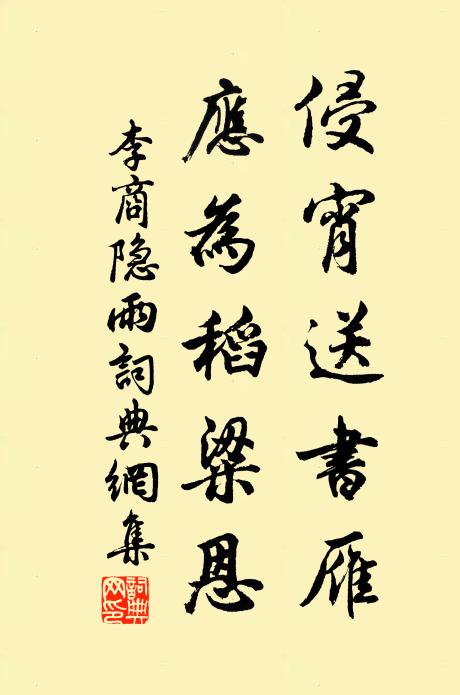 侵宵送書雁
應為稻粱恩
李商隐雨詞典網集
詞典網印